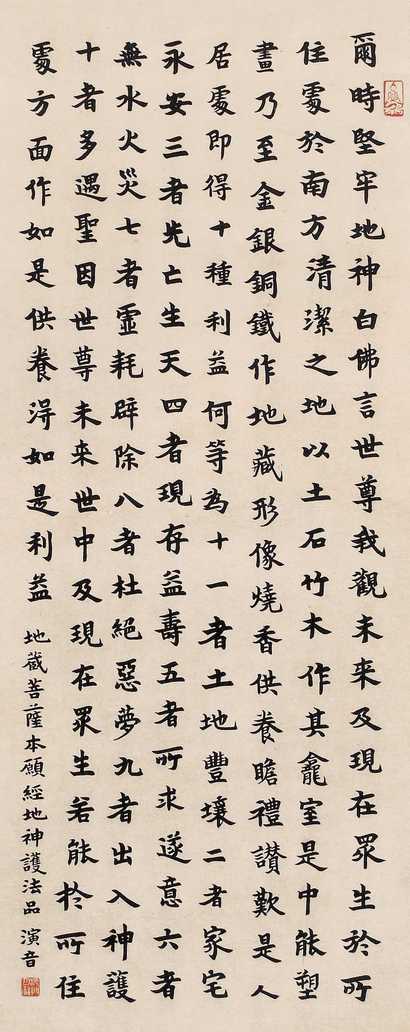 爾時堅牢地神白佛言世尊我觀未來及現在眾生於所
住處於南方清潔之地以土石竹木作其龕室是中能塑
畫乃至金銀銅鐵作地藏形像燒香供養瞻禮讚歎是人
居處即得十種利益何等為十一者土地豐壤二者家宅
永安三者先亡生天四者現存益壽五者所求遂意六者
無水火災七者虛耗辟除八者杜絕惡夢九者出入神護
十者多遇聖因世尊未來世中及現在眾生若能於所住
處方面作如是供養得如是利益
地藏菩薩本願經地神護法品 演音